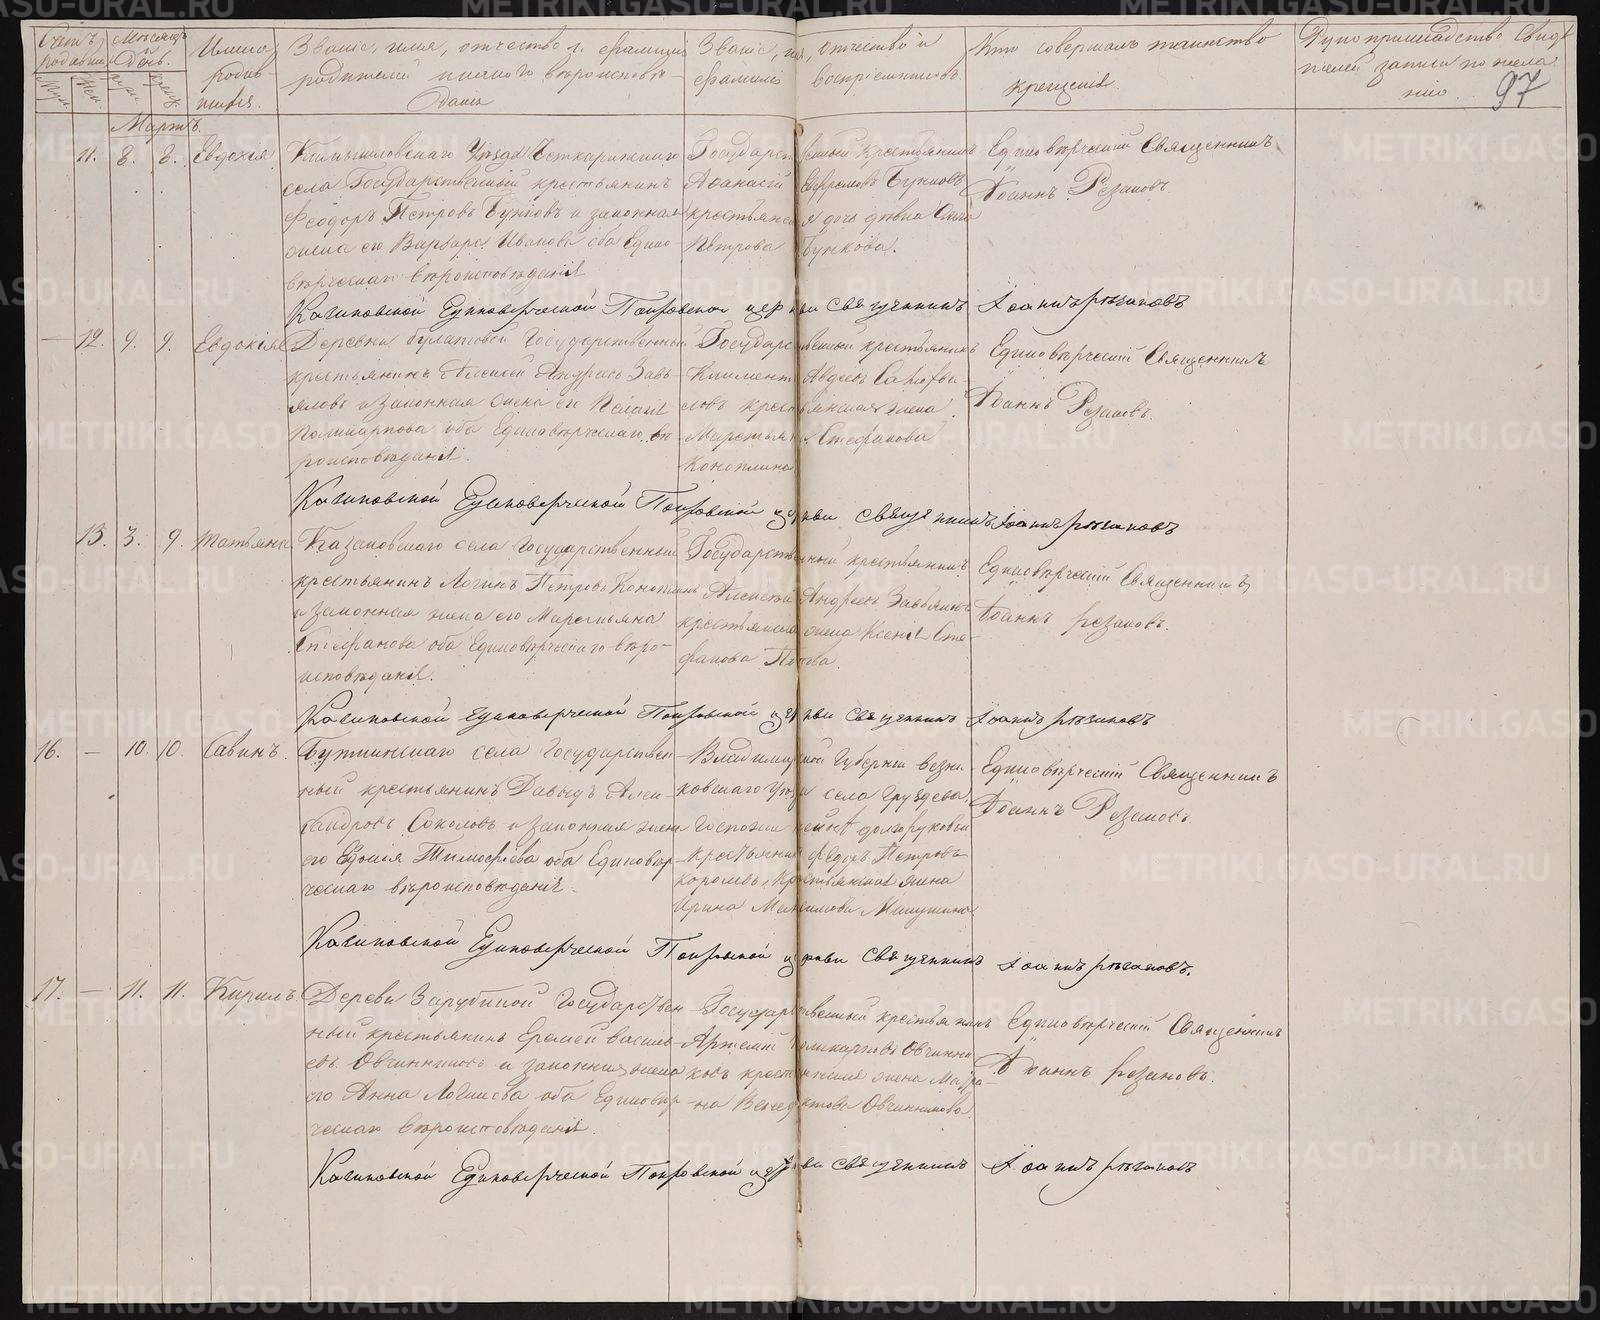 Счетъ родивш.
Муж.
Жен.
Мѣсяцъ и День.
Имена родив-
шихся.
Званіе, имя, отчество и фамилія
родителей и какого вѣроисповѣ-
данія
Званіе, имя, отчество и
фамилія воспріемниковъ
Кто совершалъ таинство
крещенія
Рукоприкладство свидѣ
телей записи по жела
нію.
97
Мартъ.
11. 8. 8. Евдокія
Камышловскаго Уѣзда
села Государственный крестьянинъ
Феодоръ Петровъ Бунковъ и законная
жена его Варвара Иванова оба Едино-
вѣрческаго вѣроисповѣданія
Государственный крестьянинъ
Афанасій Ефремовъ Бунковъ
крестьянская дочь дѣвка
Петрова Бункова.
Единовѣрческій Священникъ
Іоаннъ Резановъ
Единоверческой Покровской церкви священникъ Іоаннъ
— 12. 9. 9. Евдокія
Деревни Булатовой Государственный
крестьянинъ Алексей Андреевъ Завь-
яловъ и законная жена его Пелагія
Поликарпова оба Единовѣрческаго вѣ-
роисповѣданія.
Государственный крестьянинъ
Климентъ Авдеевъ
крестьянская жена
Маремьяна Стефанова
Коноплина
Единовѣрческій Священникъ
Іоаннъ Резановъ.
Единоверческой Покровской церкви священникъ Іоаннъ
13. 3. 9. Татьяна
Казаковскаго села Государственный
крестьянинъ Логинъ Петровъ Коноплинъ
и законная жена его Маремьяна
Стефанова оба Единовѣрческаго вѣро-
исповѣданія.
Государственный крестьянинъ
Алексей Андреевъ Завьяловъ
крестьянская жена Ксенія Сте-
фанова Попова.
Единовѣрческій Священникъ
Іоаннъ Резановъ.
Единоверческой Покровской церкви священникъ Іоаннъ
16. — 10. 10. Савинъ.
села Государствен-
ный крестьянинъ Давыдъ Алек-
сандровъ Соколовъ и законная жена
его Евдокія Тимофѣева оба Единовѣр-
ческаго вѣроисповѣданія.
Владимирской Губерніи Вязни-
ковскаго Уѣзда села Груздева,
Госпожи Долгоруковой
Крестьянинъ Федоръ Петровъ
Королевъ, Крестьянская жена
Ирина Максимова
Единовѣрческій Священникъ
Іоаннъ Резановъ.
Единоверческой Покровской церкви священникъ Іоаннъ
17. — 11. 11. Кирилъ.
Деревни Зарубиной Государствен-
ный крестьянинъ Еремей Василь-
евъ Овчинниковъ и законная жена
его Анна Логинова оба Единовѣр-
ческаго вѣроисповѣданія.
Государственный крестьянинъ
Артемій Поликарповъ Овчинни-
ковъ крестьянская жена Матро-
на Венедиктова Овчинникова.
Единовѣрческій Священникъ
Іоаннъ Резановъ.
Единоверческой Покровской церкви священникъ Іоаннъ
METRIKI.GASO-URAL.RU